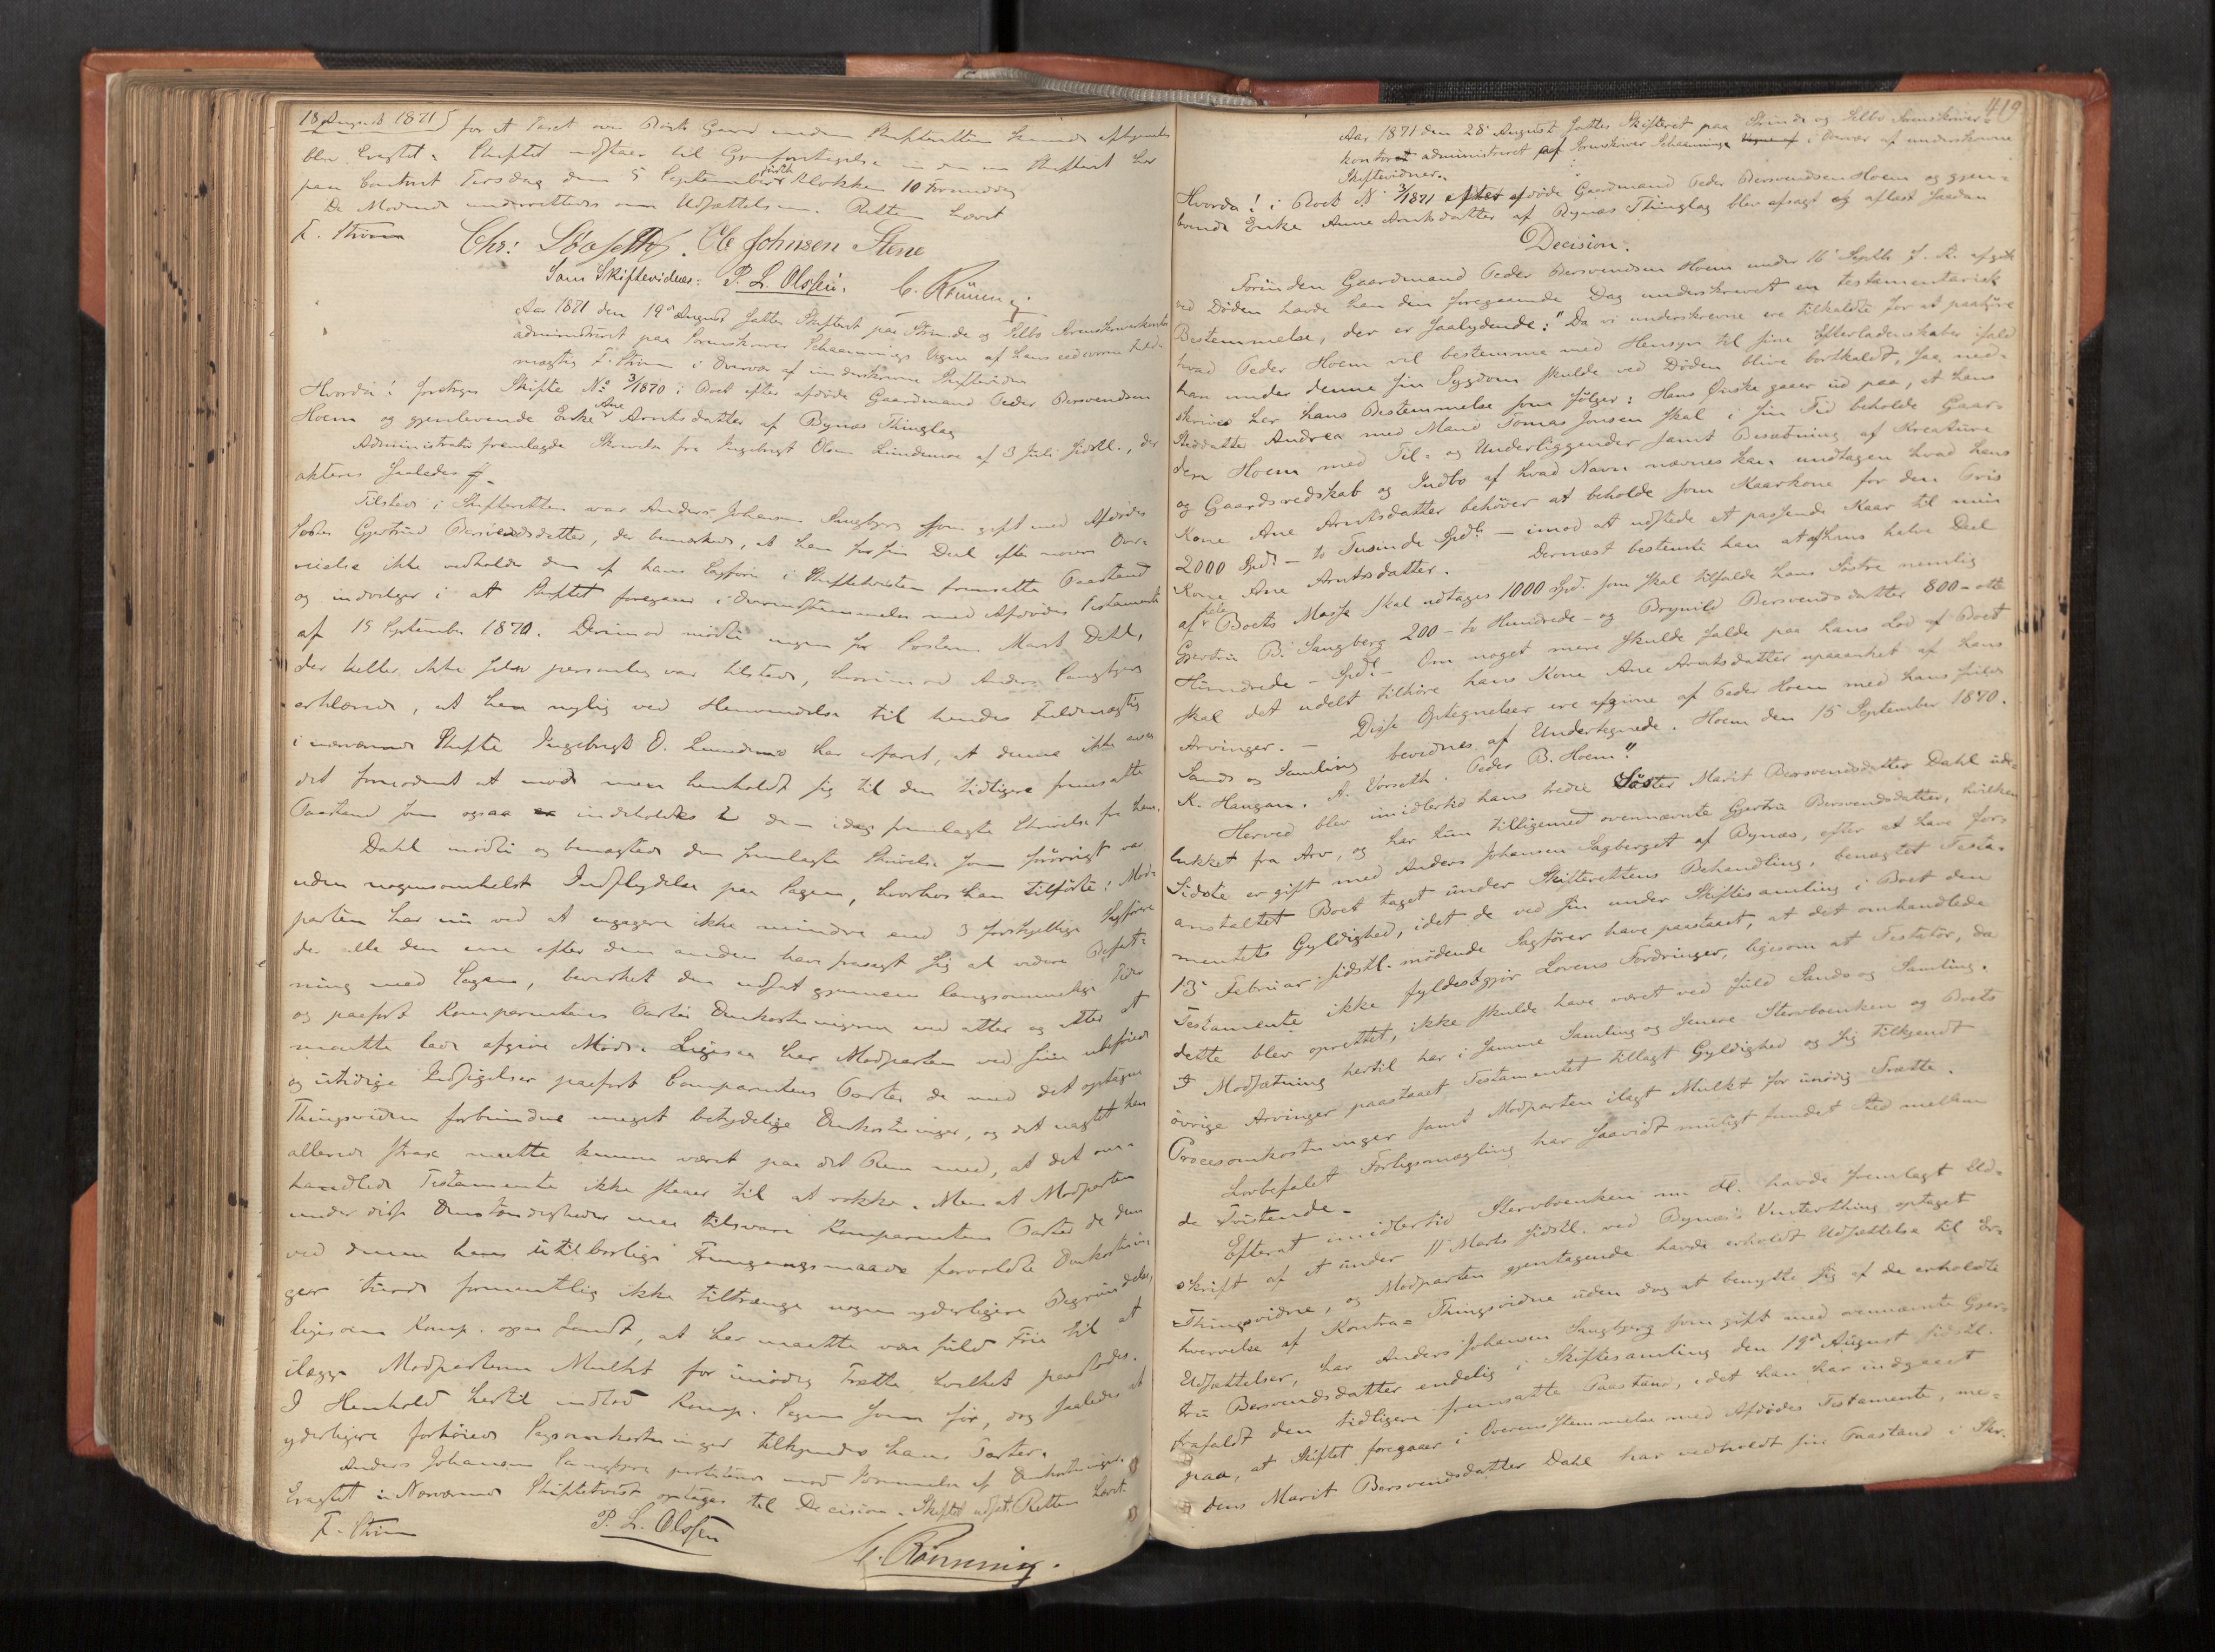 18 August 1871
for at Taxt over Boets Gaard inden Skifteretten kunde
blev Eragtet: Skiftet udstaar til Gjenforetagelse
paa Contoret Tirsdag den 5 September førstk Klokken 10 Formiddag
De Mødende underrettedes om Udsættelsen. Retten hævet
F. Strøm Chr: Ole Johnsen Stene
Som Skiftevidner: P. L. Olssen. C. Rønning.
Aar 1871 den 19de August sattes Skifteret paa Strinde og Selbo Sorenskriverkontor
administreret paa Sorenskriver Schaannings Vegne af hans edsvorne Fuld-
mægtig F. Strøm i Overvær af underskrevne Skiftevidner
Hvorda! foretoges Skifte No 3/1870 i Boet efter afdøde Gaardmand Peder Bersvendsen
Hoem og gjenlevende Enke Ane Arntsdatter af Bynæs Thinglag
Administrator fremlagde Skrivelse fra Ingebrigt Olsen Lundemo af 3 Juli sidstl., der
akteres saaledes
Tilstede i Skifteretten var Anders Johansen Sangbjerg som gift med Afdødes
Søster Gjertrud Bersvendsdatter, der bemærkede, at han for sin Deel efter nøiere Over-
veielse ikke vedholder den af hans Sagfører i Skiftetvisten fremsatte Paastand
og indvilger i at Skiftet foregaar i Overensstemmelse med Afdødes Testamente
af 15 September 1870. Derimod mødte ingen for Søsteren Marit Dahl,
der heller ikke selv personlig var tilstede, hvorimod Anders Sangbjerg
erklærede, at han nylig ved Henvendelse til hendes Fuldmægtig
i nærværende Skifte Ingebrigt O. Lundemo har erfaret, at denne ikke anser
det fornødent at møde men henholdt sig til den tidligere fremsatte
Paastand som ogsaa er indeholdt i den idag fremlagte Skrivelse fra ham.
Dahl mødte og benægtede den fremlagte Skrivelse som forøvrigt var
uden nogensomhelst Indflydelse paa Sagen, hvorhos han tilførte: Mod-
parten har nu ved at engagere ikke mindre end 3 forskjellige Sagførere
der alle den ene efter den anden have frasagt sig al videre Befat-
ning med Sagen, bevirket den udsat gjennem langsommelige Tider
og paaført Komparentens Parter Omkostninger ved atter og atter at
maatte lade afgive Møde. Ligesaa har Modparten ved sine ubeføiede
og utidige Indsigelser paaført Comparentens Parter de med det optagne
Thingsvidne forbundne meget betydelige Omkostninger, og det uagtet han
allerede strax maatte kunne været paa det Rene med, at det om-
handlede Testamente ikke staaer til at rokke. Men at Modparten
under disse Omstændigheder maa tilsvare Komparentens Parter de dem
ved denne hans utilbørlige Fremgangsmaade forvoldte Omkostnin-
ger turde formentlig ikke tiltrænge nogen yderligere Begrundelse,
ligesom Komp. ogsaa fandt, at her maatte være fuld Føie til at
ilægge Modparterne Mulkt for unødig Trætte hvilket paastodes.
I Henhold hertil indlod Komp. Sagen som før, dog saaledes at
yderligere forhøiede Sagsomkostninger tilkjendes hans Parter.
Anders Johansen Sangbjerg protesterede mod Idømmelse af Omkostninger.
Eragtet: Nærværende Skiftetvist optages til Decision. Skiftet udsat. Retten hævet.
F. Strøm P. L. Olssen
C. Rønning.
419
Aar 1871 den 28de August sattes Skifteret paa Strinde og Selbo Sorenskriver-
kontor administreret af Sorenskriver Schaanning i Overvær af underskrevne
Skiftevidner.
Hvorda! i Boet No 3/1871 efter afdøde Gaardmand Peder Bersvendsen Hoem og gjen-
levende Enke Anne Arntsdatter af Bynæs Thinglag blev afsagt og aflæst saadan
Decision.
Forinden Gaardmand Peder Bersvendsen Hoem under 16de Septb. f. A. afgik
ved Døden havde han den foregaaende Dag underskrevet en testamentarisk
Bestemmelse, der er saalydende: "Da vi underskrevne ere tilkaldte for at paahøre
hvad Peder Hoem vil bestemme med Hensyn til sine Efterladenskaber ifald
han under denne sin Sygdom skulde ved Døden blive bortkaldt, saa ned-
skrives her hans Bestemmelse som følger: Hans Ønske gaaer ud paa, at hans
Steddatter Andrea med Mand Tomas Jonsen skal i sin Tid beholde Gaar-
den Hoem med Til- og Underliggender samt Besætning af Kreature
og Gaardsredskab og Indbo af hvad Navn nævnes kan undtagen hvad hans
Kone Ane Arntsdatter behøver at beholde som Kaarkone for den Pris
2000 Spd. – to Tusinde Spdl. – imod at udstede et passende Kaar til min
Kone Ane Arntsdatter. – Dernæst bestemte han at af hans halve Deel
af hele Boets Masse skal udtages 1000 Spd. som skal tilfalde hans Søstre nemlig
Gjertru B. Sangberg 200 – to Hundrede – og Brynild Bersvendsdatter 800 – otte
Hundrede – Spd. – Om noget mere skulde falde paa hans Lod af Boet
skal det udelt tilhøre hans Kone Ane Arntsdatter upaaanket af hans
Arvinger. – Disse Optegnelser ere afgivne af Peder Hoem med hans fulde
Sands og Samling bevidnes af Undertegnede. Hoem den 15 September 1870.
K. Haugan. A. Vorseth. Peder B. Hoem".
Herved blev imidlertid hans tredie Søster Marit Bersvendsdatter Dahl ude-
lukket fra Arv, og har hun tilligemed ovennævnte Gjertru Bersvendsdatter, hvilken
Sidste er gift med Anders Johansen Sagberget af Bynæs, efter at have for-
anstaltet Boet taget under Skifterettens Behandling, benægtet Testa-
mentets Gyldighed, idet de ved sin under Skiftesamling i Boet den
13de Februar sidstl. mødende Sagfører have paastaaet, at det omhandlede
Testamente ikke fyldestgjør Lovens Fordringer, ligesom at Testator, da
dette blev oprettet, ikke skulde have været ved fuld Sands og Samling.
I Modsætning hertil har i samme Samling og senere Stervboenken og Boets
øvrige Arvinger paastaaet Testamentet tillagt Gyldighed og sig tilkjendt
Procesomkostninger samt Modparten ilagt Mulkt for unødig Trætte.
Lovbefalet Forligsmægling har saavidt muligt fundet Sted mellem
de Tvistende.
Efterat imidlertid Stervboenken m. fl. havde fremlagt Ud-
skrift af et under 11 Marts sidstl. ved Bynæs's Vinterthing optaget
Thingsvidne, og Modparten gjentagende havde erholdt Udsættelse til Er-
hvervelse af Kontra-Thingsvidne uden dog at benytte sig af de erholdte
Udsættelser, har Anders Johansen Sangbjerg som gift med ovennævnte Gjer-
tru Bersvendsdatter endelig i Skiftesamling den 19de August sidstl.
frafaldt den tidligere fremsatte Paastand, idet han har indgaaet
paa, at Skiftet foregaaer i Overensstemmelse med Afdødes Testamente, me-
dens Marit Bersvendsdatter Dahl har vedholdt sin Paastand i Skr.